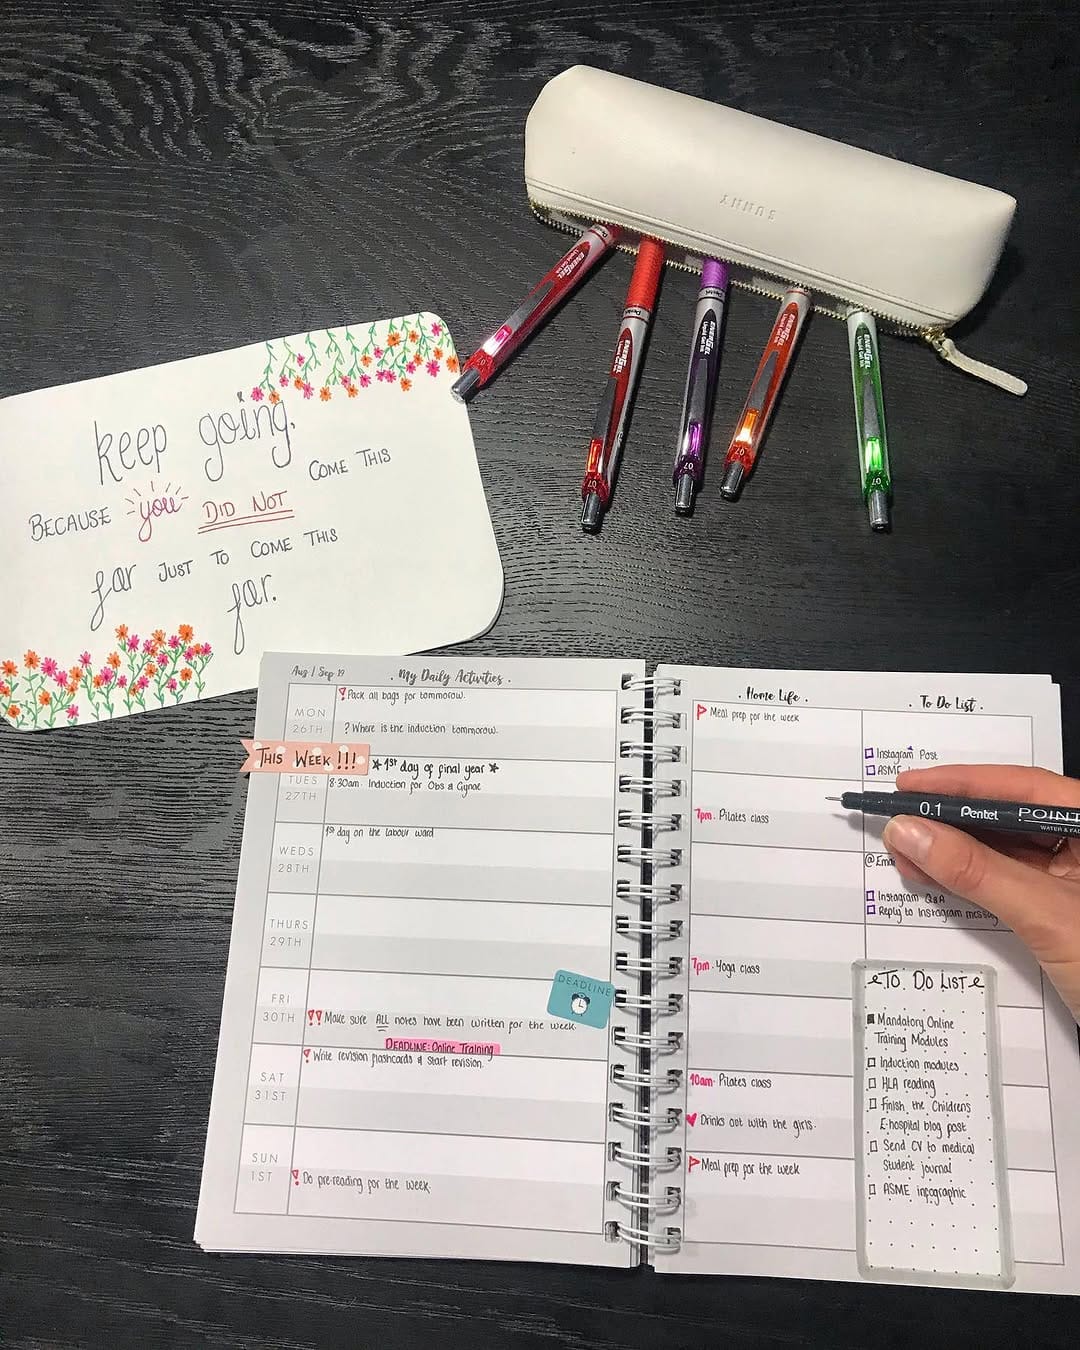 SUNNY
EnerGel
Liquid Gel Ink
Pentel
07
EnerGel
Liquid Gel Ink
07
Pentel
EnerGel
Liquid Gel Ink
07
EnerGel
Liquid Gel Ink
07
EnerGel
Liquid Gel Ink
07
keep going.
BECAUSE you DID NOT COME THIS
far JUST TO COME THIS
far.
Aug | Sep 19
. My Daily Activities .
MON
26TH
! Pack all bags for tommorow.
? Where is the induction tommorow.
THIS WEEK!!!
★ 1st day of final year ★
TUES
27TH
8:30am. Induction for Obs & Gynae
WEDS
28TH
1st day on the labour ward
THURS
29TH
FRI
30TH
DEADLINE
!! Make sure ALL notes have been written for the week.
DEADLINE: Online Training
SAT
31ST
! Write revision flashcards & start revision.
SUN
1ST
! Do pre-reading for the week.
. Home Life .
Meal prep for the week
7pm. Pilates class
7pm. Yoga class
10am. Pilates class
Drinks out with the girls.
Meal prep for the week
. To Do List .
Instagram Post
ASME
Instagram Q&A
Reply to Instagram
0.1 Pentel POINT
TO DO LIST
Mandatory Online
Training Modules
Induction modules
HLA reading
Finish the Childrens
E-hospital blog post
Send CV to medical
Student journal
ASME infographic